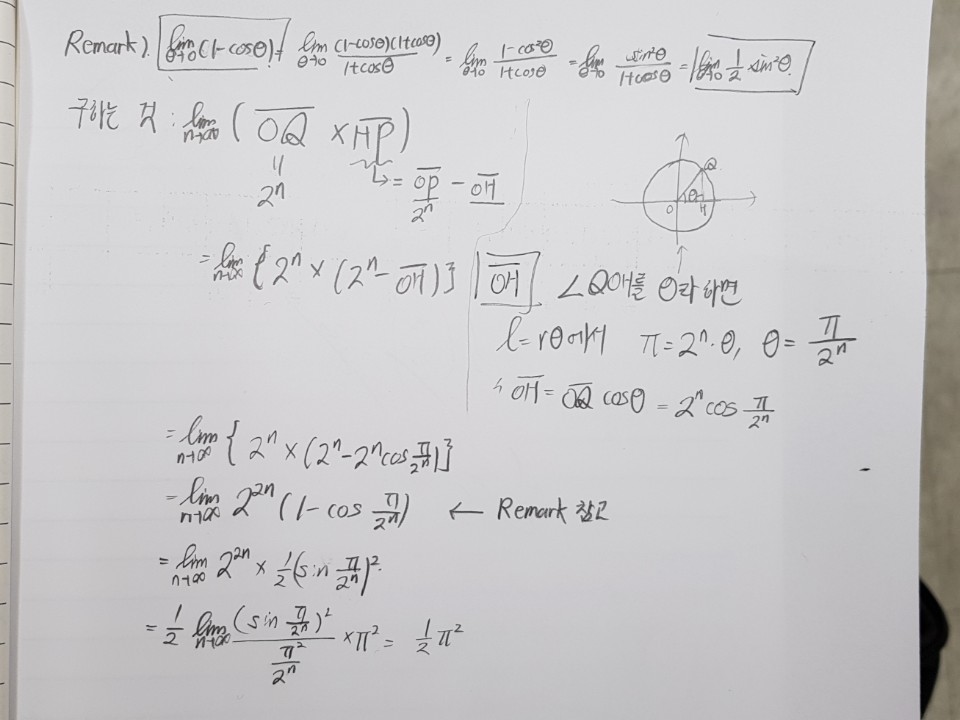 Remark). lim θ→0 (1-cosθ) = lim θ→0 (1-cosθ)(1+cosθ) / 1+cosθ = lim θ→0 1-cos²θ / 1+cosθ = lim θ→0 sin²θ / 1+cosθ = lim θ→0 1/2 sin²θ.
구하는 것 : lim n→∞ ( OQ̅ × HP̅ )
" 2ⁿ
↳ = OP̅ - OH̅
2ⁿ
= lim n→∞ { 2ⁿ × (2ⁿ - OH̅ ) }
Q
O θ H
OH̅ ∠QOH를 θ라 하면
l = rθ에서 π = 2ⁿ·θ, θ = π/2ⁿ
OH̅ = OQ̅ cosθ = 2ⁿ cos π/2ⁿ
= lim n→∞ { 2ⁿ × (2ⁿ - 2ⁿcos π/2ⁿ) }
= lim n→∞ 2²ⁿ (1 - cos π/2ⁿ) ← Remark 참고
= lim n→∞ 2²ⁿ × 1/2 (sin π/2ⁿ)².
= 1/2 lim n→∞ (sin π/2ⁿ)² / π²/2ⁿ × π² = 1/2 π²